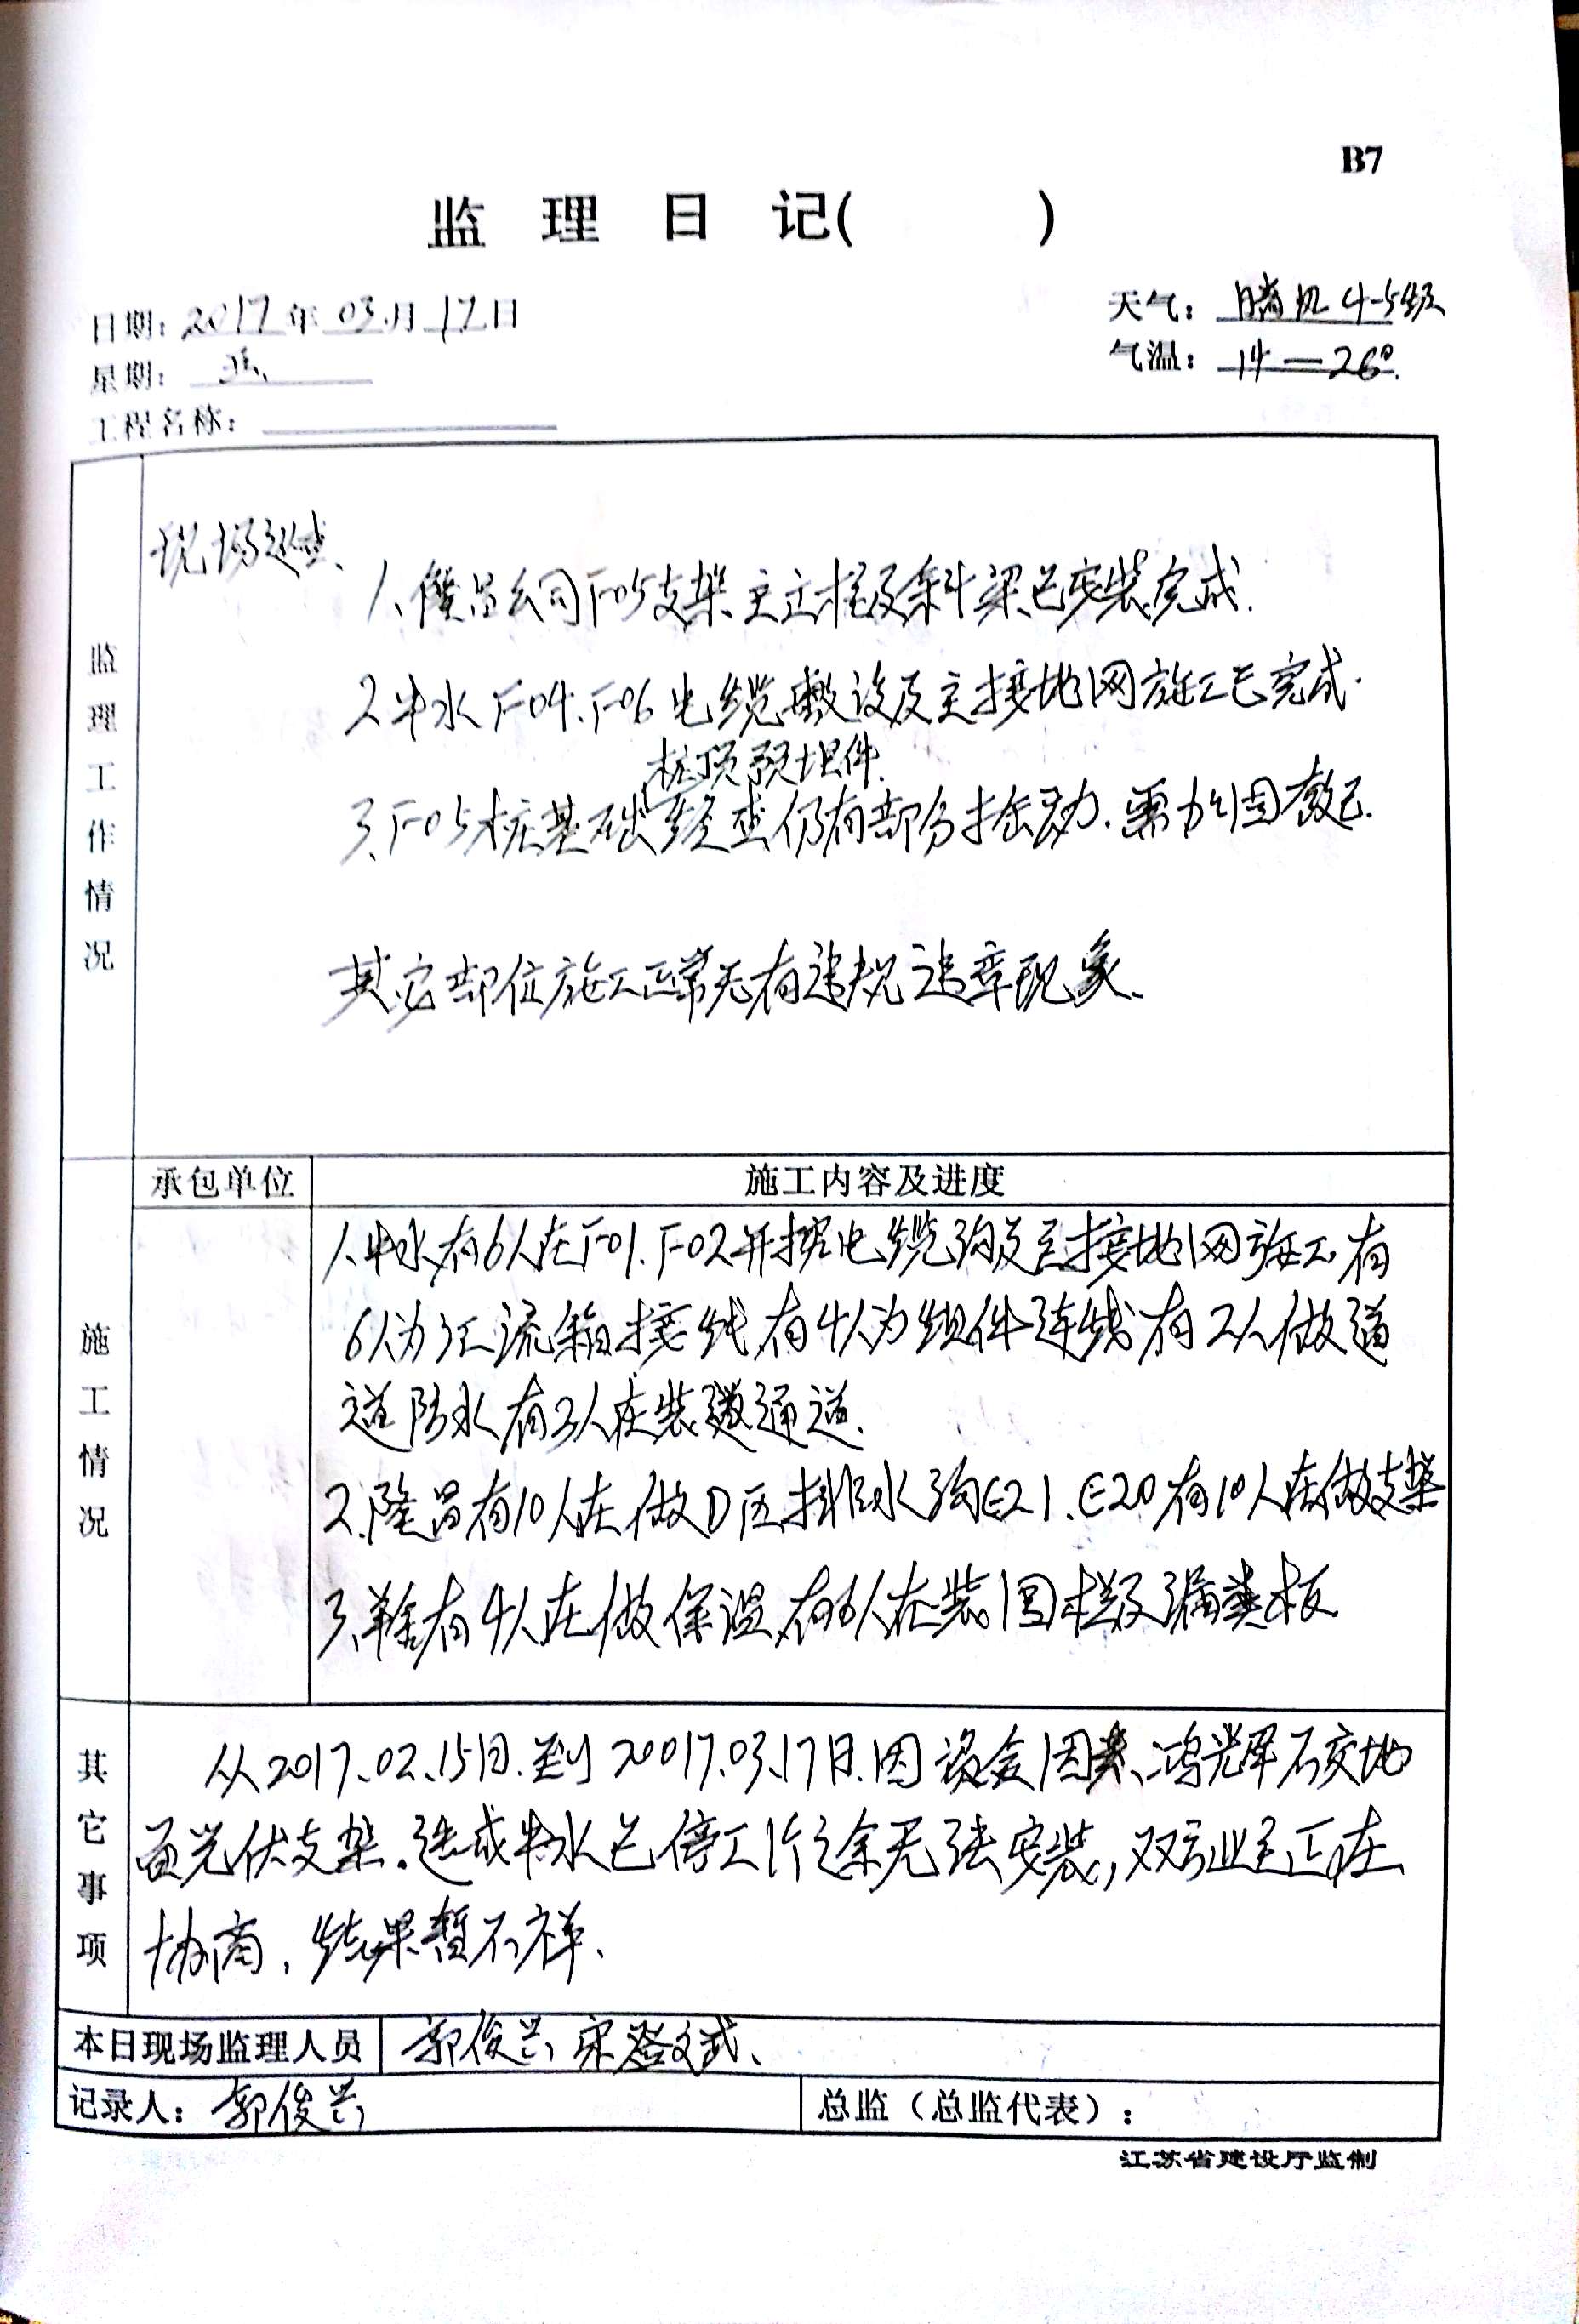 B7
监 理 日 记( )
日期: 2017年 03月 17日
天气: 晴 风 4-5级
星期: 五、
气温: 14—26°.
工程名称:
监理工作情况
现场巡查、
1、隆昌公司F05支架、主立柱及斜梁已安装完成.
2、中水F04、F06电缆敷设及主接地网施工已完成.
桩顶预埋件
3、F05桩基础 经查仍有部分 需加固
其它部位施工正常无有违规违章现象、
承包单位 施工内容及进度
施工情况
1、中水有6人在F01、F02开挖电缆沟及主接地网施工有
6人为汇流箱接线,有4人为组件连线有2人做通
道防水有3人在装 通道.
2.隆昌有10人在做D区排水沟E21、E20有10人在做支架
3、羊舍有4人在做保温,有6人在装围栏及漏粪板
其它事项
从2017、02、15日.到20017.03、17日.因资金因素、鸿晖不交地
面光伏支架.造成中水已停工1个 余无法安装,双方业主正在
协商,结果暂不祥、
本日现场监理人员 郭俊兰 宋登武、
记录人: 郭俊兰
总监(总监代表):
江苏省建设厅监制